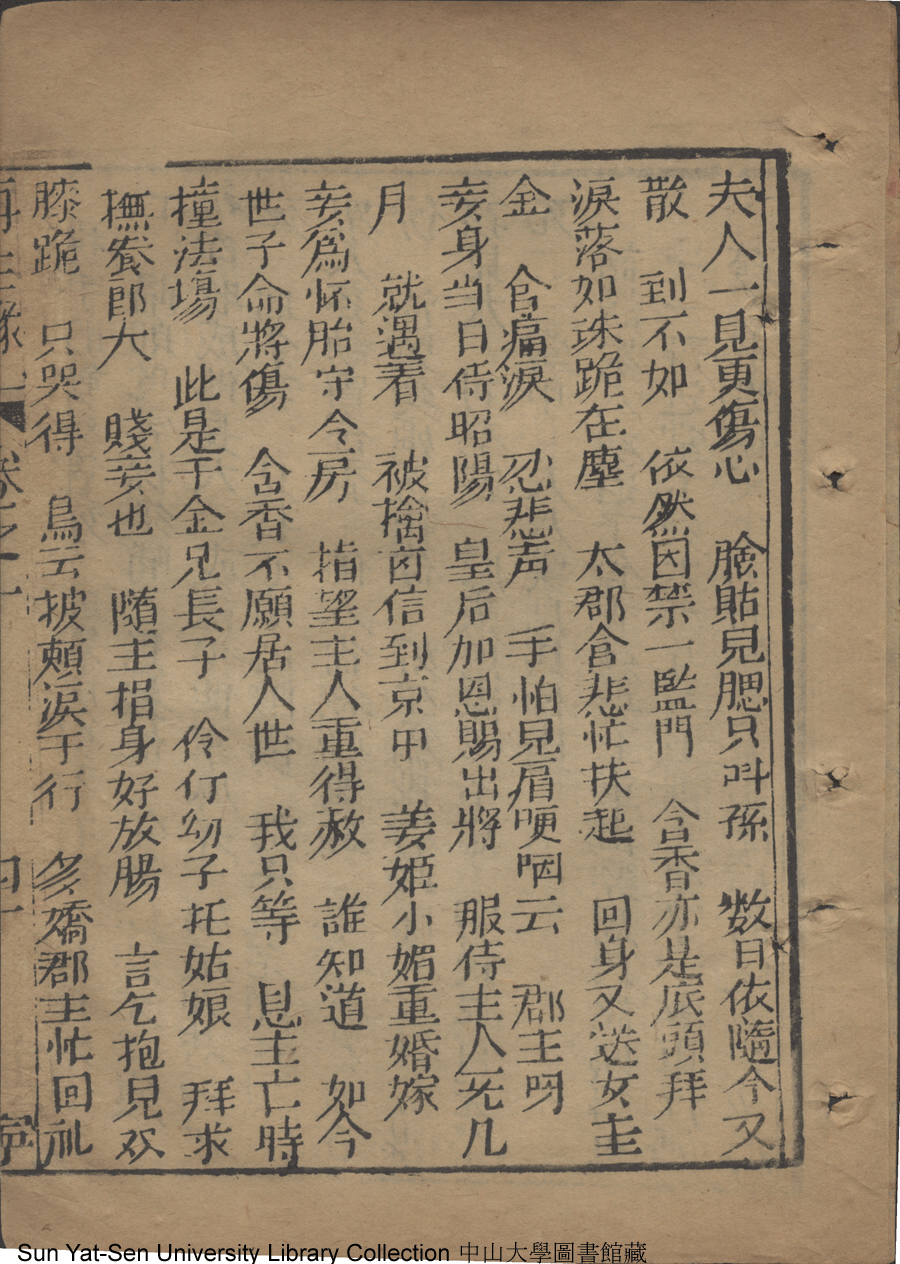 夫人一見更傷心　臉貼見腮只叫孫　数日依隨今又
散　到不如　依然因禁一監門　含香亦是底頭拜
淚落如珠跪在塵　太郡含悲忙扶起　回身又送女圭
金　含痛淚　忍悲声　手怕見眉哽咽云　郡主呀
妾身当日侍昭陽　皇后加恩賜出將　服侍主人旡几
月　就遇着　被擒囟信到京中　姜姬小媚重婚嫁
妾爲怀胎守令房　指望主人重得赦　誰知道　如今
世子命將傷　含香不願居人世　我只等　恩主亡時
撞法塲　此是千金兄長子　伶仃幼子托姑娘　拜求
撫養郎大　賤妾也　隨主捐身好放腸　言乞抱見双
膝跪　只哭得　烏云披頰淚千行　多嬌郡主忙回礼
再生緣　卷之十
Sun Yat-Sen University Library Collection 中山大學圖書館藏